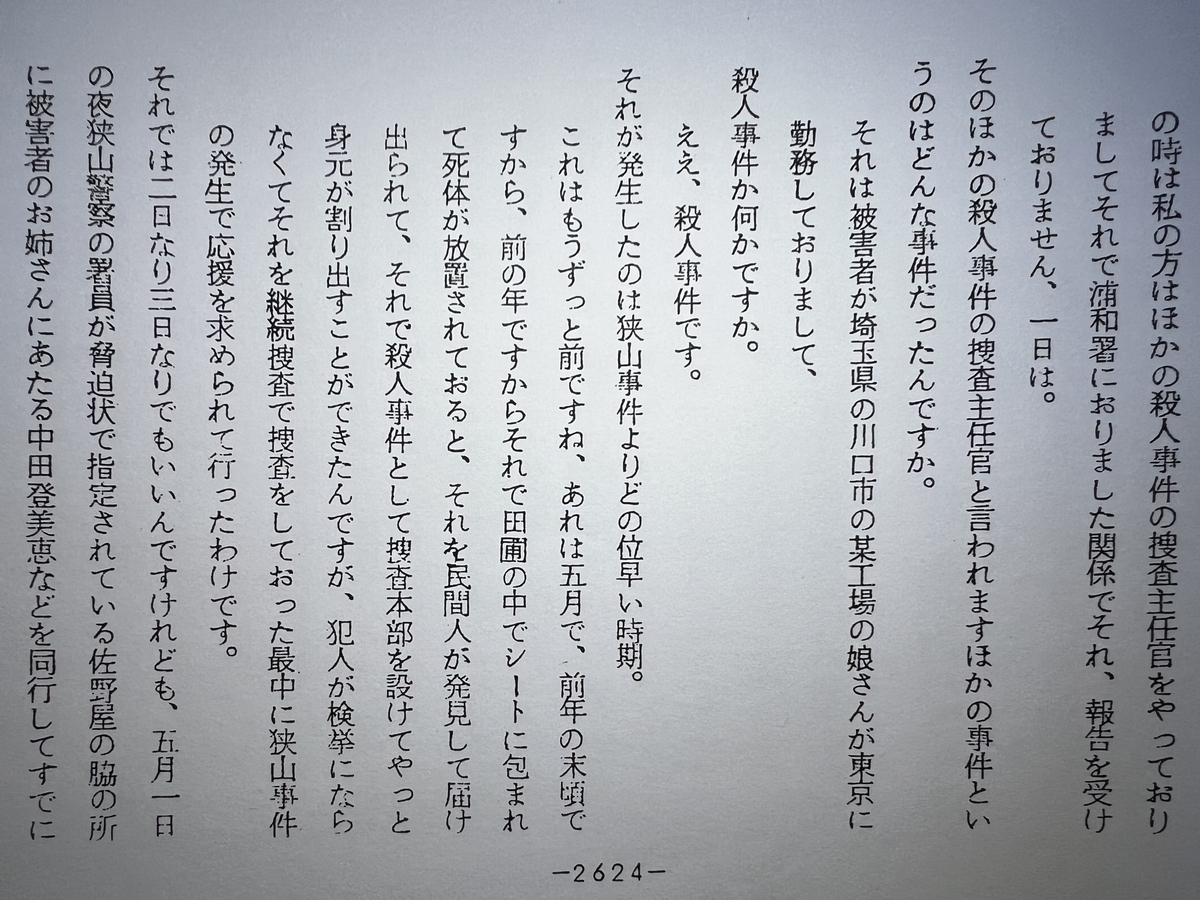 の時は私の方はほかの殺人事件の捜査主任官をやっており
ましてそれで浦和署におりました関係でそれ、報告を受け
ておりません、一日は。
そのほかの殺人事件の捜査主任官と言われますほかの事件とい
うのはどんな事件だったんですか。
それは被害者が埼玉県の川口市の某工場の娘さんが東京に
勤務しておりまして、
殺人事件か何かですか。
ええ、殺人事件です。
それが発生したのは狭山事件よりどの位早い時期。
これはもうずっと前ですね、あれは五月で、前年の末頃で
すから、前の年ですからそれで田圃の中でシートに包まれ
て死体が放置されておると、それを民間人が発見して届け
出られて、それで殺人事件として捜査本部を設けてやっと
身元が割り出すことができたんですが、犯人が検挙になら
なくてそれを継続捜査で捜査をしておった最中に狭山事件
の発生で応援を求められて行ったわけです。
それでは二日なり三日なりでもいいんですけれども、五月一日
の夜狭山警察の署員が脅迫状で指定されている佐野屋の脇の所
に被害者のお姉さんにあたる中田登美恵などを同行してすでに
—2624—